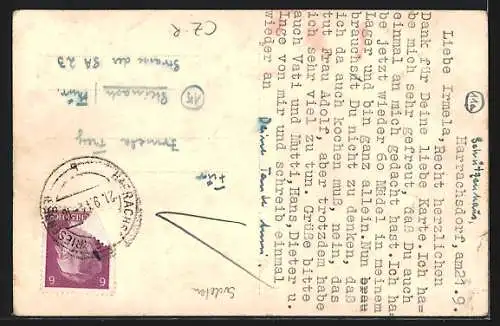 (11a) Schützenhaus,
Harrachsdorf, am 21.9.
Liebe Irmela, Recht herzlichen
Dank für Deine liebe Karte. Ich ha=
be mich sehr gefreut, daß Du auch
einmal an mich gedacht hast. Ich ha=
be jetzt wieder 60 Mädel in meinem
Lager und bin ganz allein. Nun brau
brauchst Du nicht zu denken, daß
ich da auch kochen muß, nein, das
tut Frau Adolf, aber trotzdem habe
ich sehr viel zu tun. Grüße bitte
auch Vati und Mutti, Hans, Dieter u.
Inge von mir und schreib einmal
wieder an Deine Tante
Für
Irmela
(15)
Thür.
Strasse der SA 23
CZ-R
Sudeten
6 6